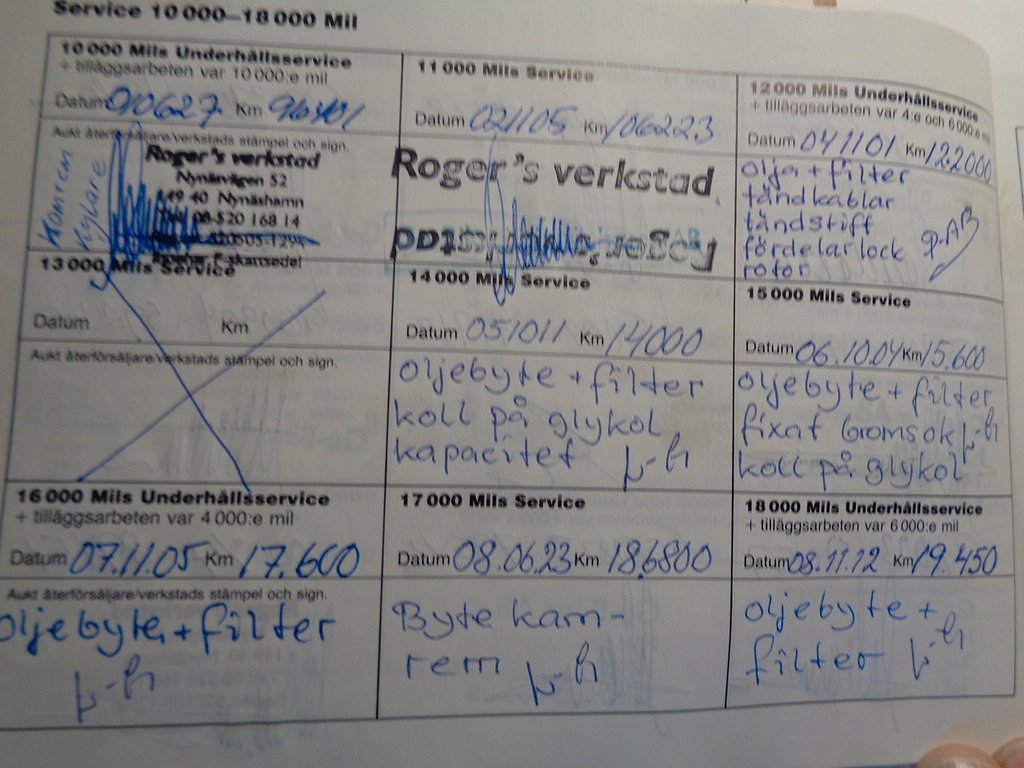 Service 10 000–18 000 Mil
10 000 Mils Underhållsservice
+ tilläggsarbeten var 10 000:e mil
Datum 010627 Km 96401
Aukt återförsäljare/verkstads stämpel och sign.
Kamrem
Kylare
Roger's verkstad
Nynäsvägen 52
149 40 Nynäshamn
08-520 168 14
11 000 Mils Service
Datum 021105 Km 106223
Roger's verkstad
Roger's verkstad
12 000 Mils Underhållsservice
+ tilläggsarbeten var 4:e och 6 000:e mil
Datum 041101 Km 122000
olja + filter
tändkablar
tändstift
fördelarlock
rotor
13 000 Mils Service
Datum Km
Aukt återförsäljare/verkstads stämpel och sign.
14 000 Mils Service
Datum 051011 Km 14000
oljebyte + filter
koll på glykol
kapacitet
15 000 Mils Service
Datum 06.10.04 Km 15.600
oljebyte + filter
fixat bromsok
koll på glykol
16 000 Mils Underhållsservice
+ tilläggsarbeten var 4 000:e mil
Datum 07.11.05 Km 17.600
Aukt återförsäljare/verkstads stämpel och sign.
oljebyte + filter
17 000 Mils Service
Datum 08.06.23 Km 186800
Byte kam-
rem
18 000 Mils Underhållsservice
+ tilläggsarbeten var 6 000:e mil
Datum 08.11.12 Km 19.450
oljebyte +
filter